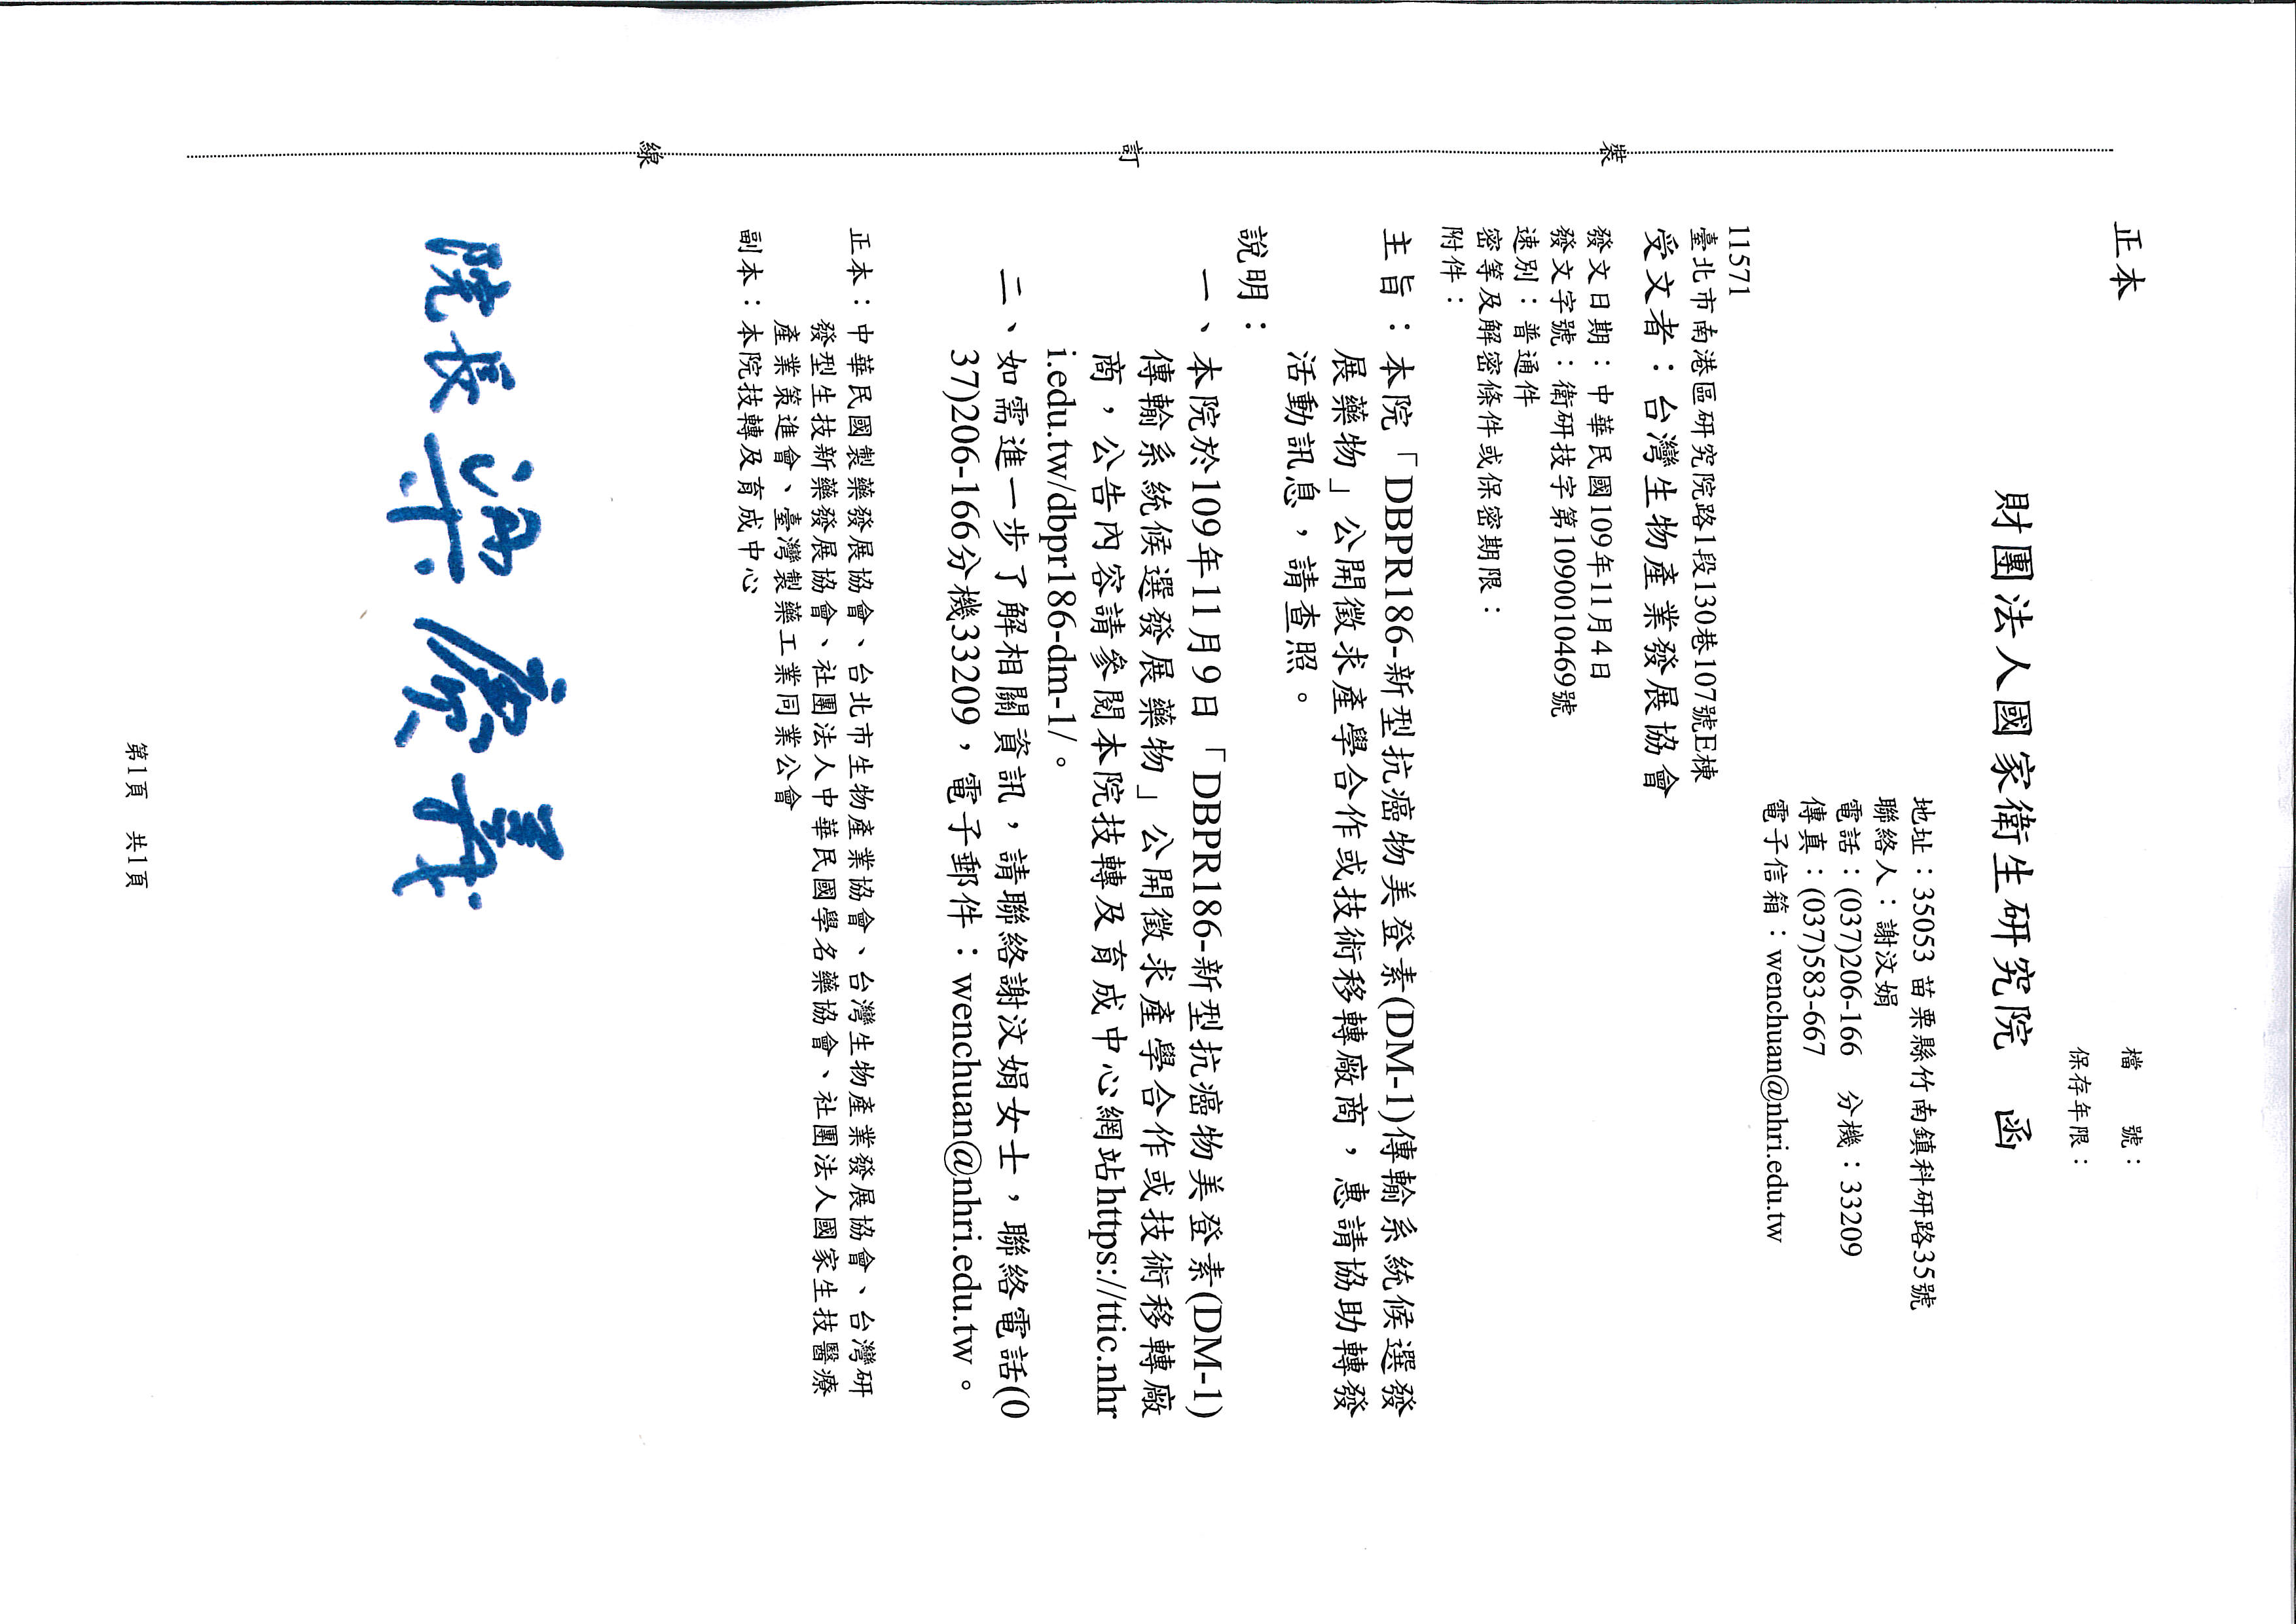 正本
檔　　號：
保存年限：
財團法人國家衛生研究院　函
地址：35053 苗栗縣竹南鎮科研路35號
聯絡人：謝汶娟
電話：(037)206-166　分機：33209
傳真：(037)583-667
電子信箱：wenchuan@nhri.edu.tw
11571
臺北市南港區研究院路1段130巷107號E棟
受文者：台灣生物產業發展協會
發文日期：中華民國109年11月4日
發文字號：衛研技字第1090010469號
速別：普通件
密等及解密條件或保密期限：
附件：
主旨：本院「DBPR186-新型抗癌物美登素(DM-1)傳輸系統候選發
展藥物」公開徵求產學合作或技術移轉廠商，惠請協助轉發
活動訊息，請查照。
說明：
一、本院於109年11月9日「DBPR186-新型抗癌物美登素(DM-1)
傳輸系統候選發展藥物」公開徵求產學合作或技術移轉廠
商，公告內容請參閱本院技轉及育成中心網站https://ttic.nhr
i.edu.tw/dbpr186-dm-1/。
二、如需進一步了解相關資訊，請聯絡謝汶娟女士，聯絡電話(0
37)206-166分機33209，電子郵件：wenchuan@nhri.edu.tw。
正本：中華民國製藥發展協會、台北市生物產業協會、台灣生物產業發展協會、台灣研
發型生技新藥發展協會、社團法人中華民國學名藥協會、社團法人國家生技醫療
產業策進會、臺灣製藥工業同業公會
副本：本院技轉及育成中心
院長梁賡義
第1頁　共1頁
裝
訂
線